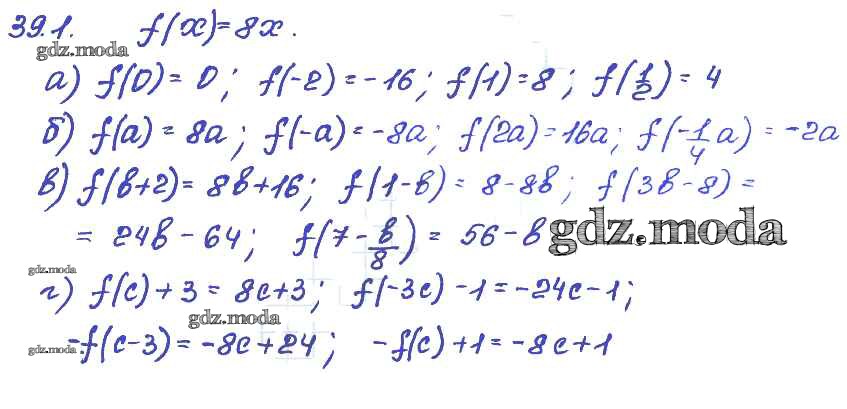 39.1. f(x)=8x.
gdz.moda
а) f(0)= 0; f(-2)=-16; f(1)=8; f(1/2)= 4
б) f(a)= 8a; f(-a)=-8a; f(2a)=16a; f(-1/4 a) = -2a
в) f(b+2)= 8b+16; f(1-b)= 8-8b; f(3b-8)=
= 24b-64; f(7-b/8)= 56-b gdz.moda
gdz.moda
г) f(c)+3= 8c+3; f(-3c)-1=-24c-1;
gdz.moda
gdz.moda -f(c-3)=-8c+24; -f(c)+1=-8c+1